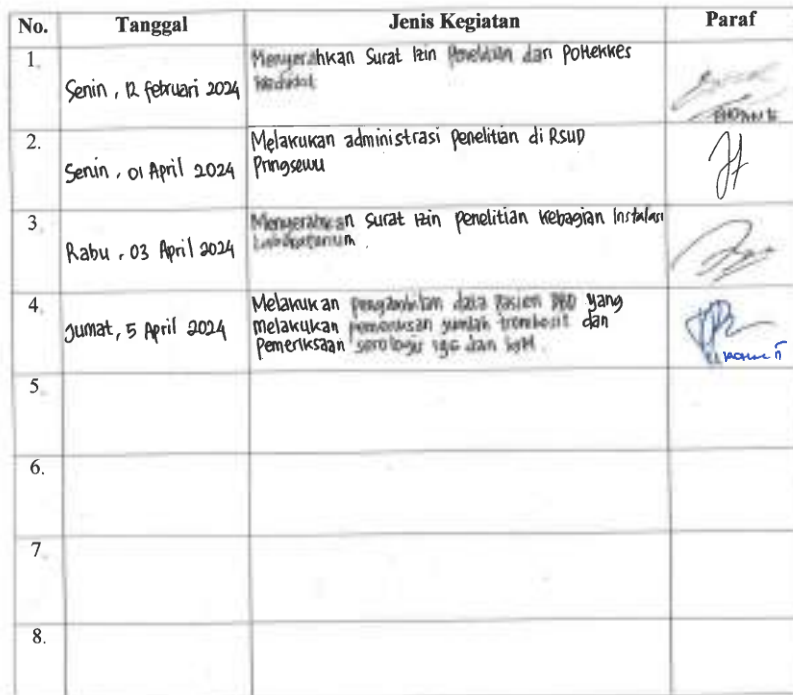 No. Tanggal Jenis Kegiatan Paraf
1. Senin, 12 februari 2024 Menyerahkan Surat Izin Penelitian dari Poltekkes
2. Senin, 01 April 2024 Melakukan administrasi penelitian di RSUD
Pringsewu
3. Rabu, 03 April 2024 Menyerahkan Surat Izin penelitian kebagian Instalasi
Laboratorium.
4. Jumat, 5 April 2024 Melakukan pengambilan data Pasien DBD yang
melakukan pemeriksan jumlah trombosit dan
Pemeriksaan serologis IgG dan IgM.
5.
6.
7.
8.